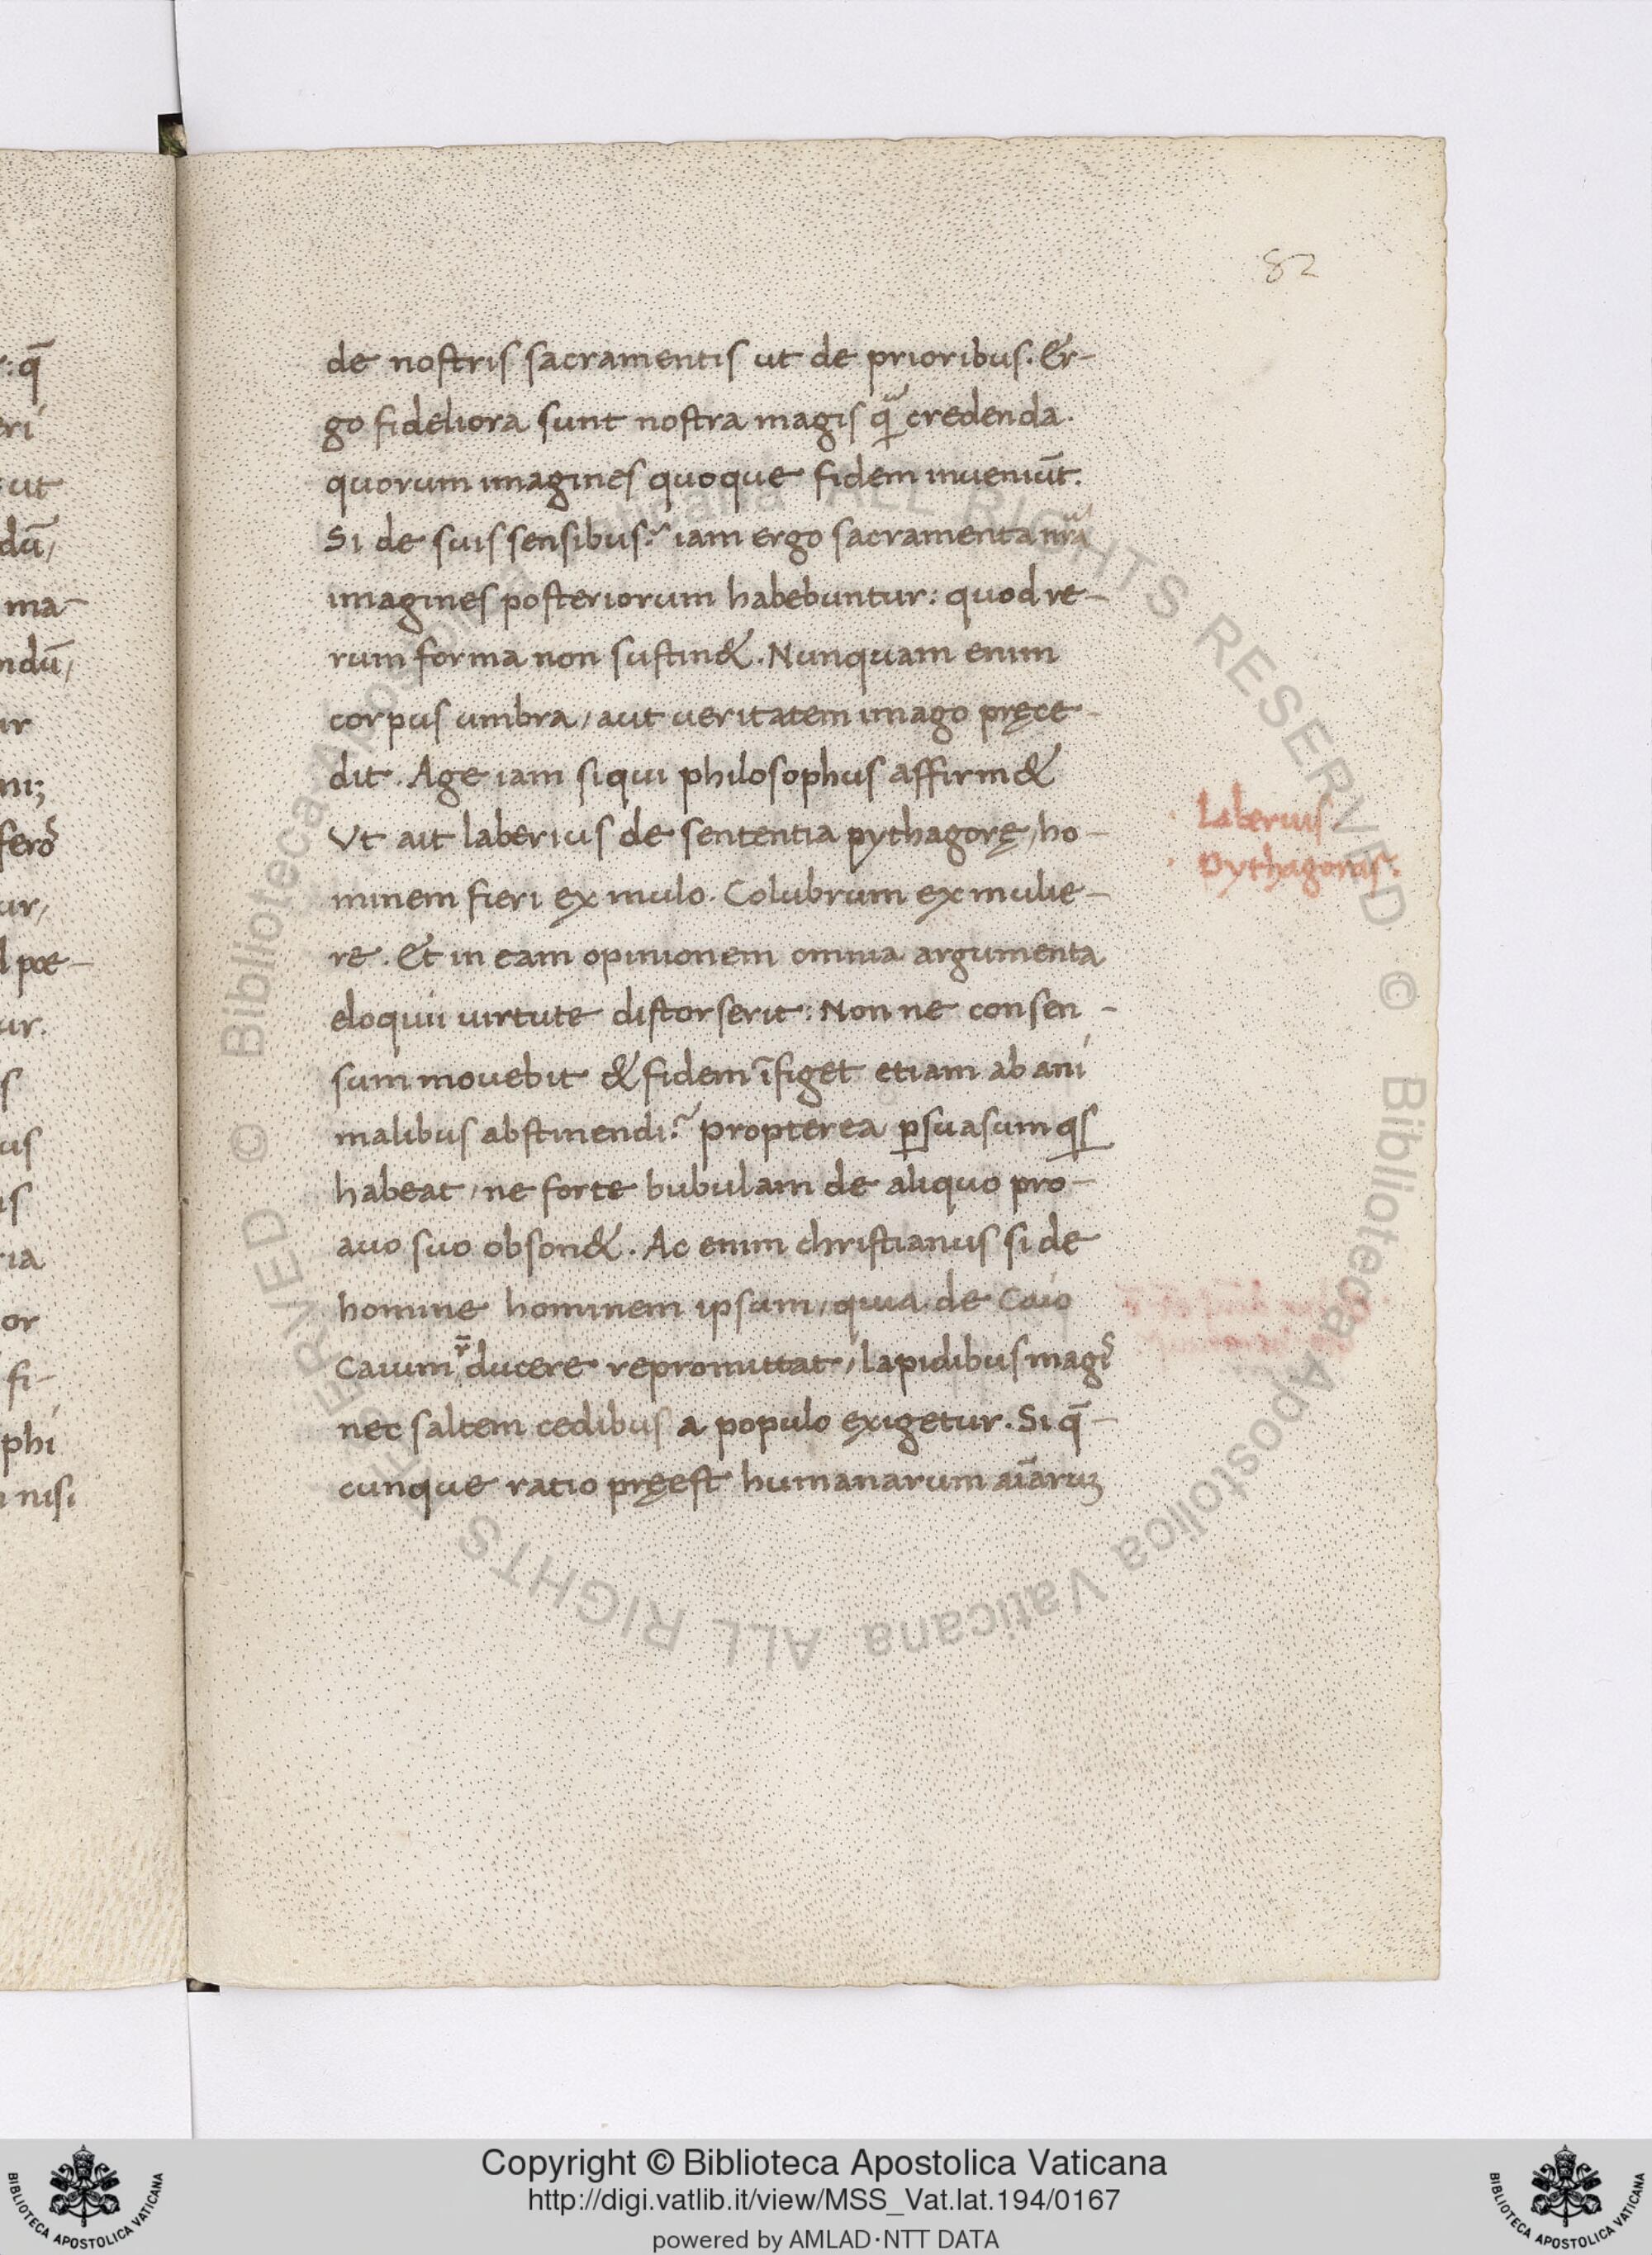 82
de nostris sacramentis ut de prioribus. Er-
go fideliora sunt nostra magisq̃ credenda.
quorum imagines quoque fidem inueniūt.
Si de suis sensibus? iam ergo sacramenta nr̃a
imagines posteriorum habebuntur: quod re-
rum forma non sustin&. Nunquam enim
corpus umbra, aut ueritatem imago pręce-
dit. Age iam siqui philosophus affirm&
Vt ait laberius de sententia pythagorę, ho-
minem fieri ex mulo. Colubrum ex mulie-
re. Et in eam opinionem omnia argumenta
eloquii uirtute distorserit: Non ne consen-
sum mouebit & fidem īfiget etiam ab ani
malibus abstinendi? propterea ꝑsuasum qs
habeat, ne forte bubulam de aliquo pro-
auo suo obson&. Ac enim christianus si de
homine hominem ipsum, quia de Caio
Caium r̄ ducere repromittat, lapidibus magis
nec saltem cedibus a populo exigetur. Si q̄-
cunque ratio pręest humanarum aīaruꝫ
Laberius
Pythagoras:
r: q̄
eri
ut
dū,
ma-
ndū,
ur
ni;
fero
ur,
l poe-
ur.
s
us
is
ria
or
fi-
phi
nisi
© Biblioteca Apostolica Vaticana ALL RIGHTS RESERVED © Biblioteca Apostolica Vaticana ALL RIGHTS RESERVED
Copyright © Biblioteca Apostolica Vaticana
http://digi.vatlib.it/view/MSS_Vat.lat.194/0167
powered by AMLAD·NTT DATA
BIBLIOTECA APOSTOLICA VATICANA
BIBLIOTECA APOSTOLICA VATICANA